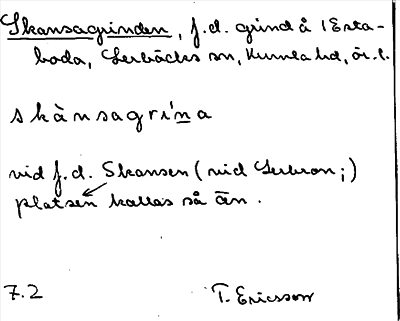 Skansagrinden, f.d. grind å (Esta-
boda, Lerbäcks sn, Kumla hd, ör.l.
skànsagrína
vid f.d. Skansen (vid Lerbron;)
platsen kallas så än.
7.2 T. Ericsson